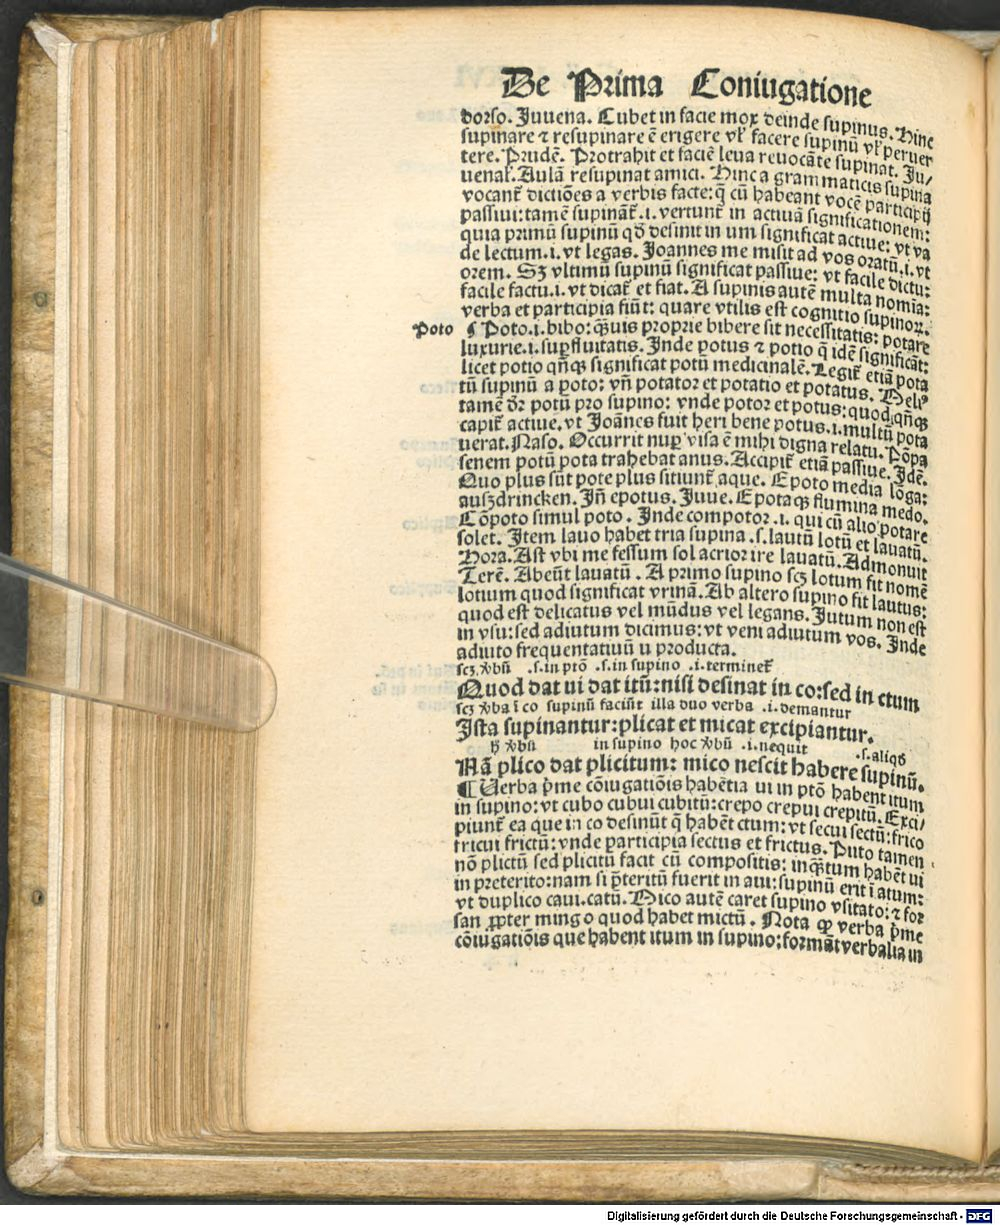 De Prima Coniugatione
dorso. Juuena. Cubet in facie mox deinde supinus. Hinc
supinare ⁊ resupinare ē erigere vł facere supinū vł peruer
tere. Prudē. Protrahit et faciē leua reuocāte supinat. Ju/
uenał. Aulā resupinat amici. Hinc a grammaticis supina
vocant᷑ dictiōes a verbis facte: q̄ cū habeant vocē participij
passiui: tamē supināt᷑ .i. vertunt᷑ in actiuā significationem:
quia primū supinū qd̄ desinit in um significat actiue: vt va
de lectum .i. vt legas. Joannes me misit ad vos oratū .i. vt
orem. Sꝫ vltimū supinū significat passiue: vt facile dictu:
facile factu .i. vt dicat᷑ et fiat. A supinis autē multa nomīa:
verba et participia fiūt: quare vtilis est cognitio supinoꝝ.
Poto ¶ Poto .i. bibo: q̄uis proprie bibere sit necessitatis: potare
luxurie .i. suꝑfluitatis. Inde potus ⁊ potio q̄ idē significāt:
licet potio qn̄qꝫ significat potū medicinalē. Legit᷑ etiā pota
tū supinū a poto: vn̄ potator et potatio et potatus. Meliꝰ
tamē dr̄ potū pro supino: vnde potor et potus: quod qn̄qꝫ
capit᷑ actiue, vt Joānes fuit heri bene potus .i. multū pota
uerat. Naso. Occurrit nuꝑ visa ē mihi digna relatu. Pōpa
senem potū pota trahebat anus. Accipit᷑ etiā passiue. Idē.
Quo plus sūt pote plus sitiunt᷑ aque. Epoto media lōga:
auszdrincken. Jn̄ epotus. Juue. Epotaqꝫ flumina medo.
Cōpoto simul poto. Inde compotor .i. qui cū alio potare
solet. Item lauo habet tria supina .s. lautū lotū et lauatū.
Hora. Ast vbi me fessum sol acrior ire lauatū. Admonuit
Terē. Abeūt lauatū. A primo supino scꝫ lotum fit nomē
lotium quod significat vrinā. Ab altero supino fit lautus:
quod est delicatus vel mūdus vel legans. Iutum non est
in vsu: sed adiutum dicimus: vt veni adiutum vos. Inde
adiuto frequentatiuū u producta.
scꝫ v̄bū .s. in ptō .s. in supino .i. terminet᷑
Quod dat ui dat itū: nisi desinat in co: sed in ctum
scꝫ v̄ba ī co supinū faciūt illa duo verba .i. demantur
Ista supinantur: plicat et micat excipiantur.
h̄ v̄bū in supino hoc v̄bū .i. nequit .s. aliqd̄
Nā plico dat plicitum: mico nescit habere supinū.
¶ Uerba p̄me cōiugatiōis habētia ui in ptō habent itum
in supino: vt cubo cubui cubitū: crepo crepui crepitū. Exci/
piunt᷑ ea que in co desinūt q̄ habēt ctum: vt secui sectū: frico
fricui frictū: vnde participia sectus et frictus. Puto tamen
nō plictū sed plicitū facit cū compositis: inq̄ꝫtum habēt ui
in preterito: nam si p̄teritū fuerit in aui: supinū erit ī atum:
vt duplico caui. catū. Mico autē caret supino vsitato: ⁊ for
san ꝓpter mingo quod habet mictū. Nota ꝙ verba p̄me
cōiugatiōis que habent itum in supino: formāt verbalia in
Digitalisierung gefördert durch die Deutsche Forschungsgemeinschaft - DFG